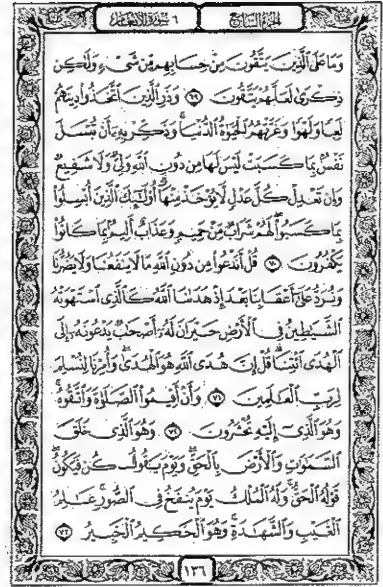 الجزء السابع
٦ سورة الأنعام
وَمَا عَلَى الَّذِينَ يَتَّقُونَ مِنْ حِسَابِهِم مِّن شَيْءٍ وَلَٰكِن
ذِكْرَىٰ لَعَلَّهُمْ يَتَّقُونَ ۝٦٩ وَذَرِ الَّذِينَ اتَّخَذُوا دِينَهُمْ
لَعِبًا وَلَهْوًا وَغَرَّتْهُمُ الْحَيَوٰةُ الدُّنْيَا وَذَكِّرْ بِهِ أَن تُبْسَلَ
نَفْسٌ بِمَا كَسَبَتْ لَيْسَ لَهَا مِن دُونِ اللَّهِ وَلِيٌّ وَلَا شَفِيعٌ
وَإِن تَعْدِلْ كُلَّ عَدْلٍ لَّا يُؤْخَذْ مِنْهَا أُولَٰئِكَ الَّذِينَ أُبْسِلُوا
بِمَا كَسَبُوا لَهُمْ شَرَابٌ مِّنْ حَمِيمٍ وَعَذَابٌ أَلِيمٌ بِمَا كَانُوا
يَكْفُرُونَ ۝٧٠ قُلْ أَنَدْعُوا مِن دُونِ اللَّهِ مَا لَا يَنفَعُنَا وَلَا يَضُرُّنَا
وَنُرَدُّ عَلَىٰ أَعْقَابِنَا بَعْدَ إِذْ هَدَىٰنَا اللَّهُ كَالَّذِي اسْتَهْوَتْهُ
الشَّيَٰطِينُ فِي الْأَرْضِ حَيْرَانَ لَهُ أَصْحَٰبٌ يَدْعُونَهُ إِلَى
الْهُدَى ائْتِنَا قُلْ إِنَّ هُدَى اللَّهِ هُوَ الْهُدَىٰ وَأُمِرْنَا لِنُسْلِمَ
لِرَبِّ الْعَٰلَمِينَ ۝٧١ وَأَنْ أَقِيمُوا الصَّلَوٰةَ وَاتَّقُوهُ
وَهُوَ الَّذِي إِلَيْهِ تُحْشَرُونَ ۝٧٢ وَهُوَ الَّذِي خَلَقَ
السَّمَٰوَٰتِ وَالْأَرْضَ بِالْحَقِّ وَيَوْمَ يَقُولُ كُن فَيَكُونُ
قَوْلُهُ الْحَقُّ وَلَهُ الْمُلْكُ يَوْمَ يُنفَخُ فِي الصُّورِ عَٰلِمُ
الْغَيْبِ وَالشَّهَٰدَةِ وَهُوَ الْحَكِيمُ الْخَبِيرُ ۝٧٣
١٣٦